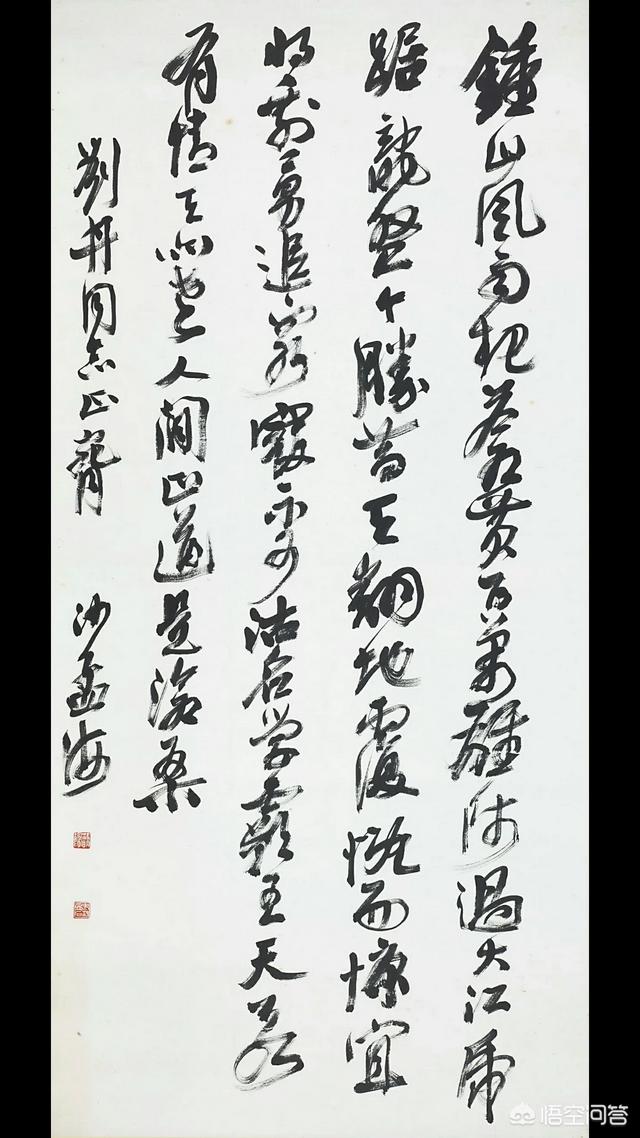 鍾山風雨起蒼黄百萬雄师過大江虎
踞龍盤今勝昔天翻地覆慨而慷宜
将剩勇追窮寇不可沽名学霸王天若
有情天亦老人間正道是滄桑
劉丹同志正
沙孟海
悟空问答